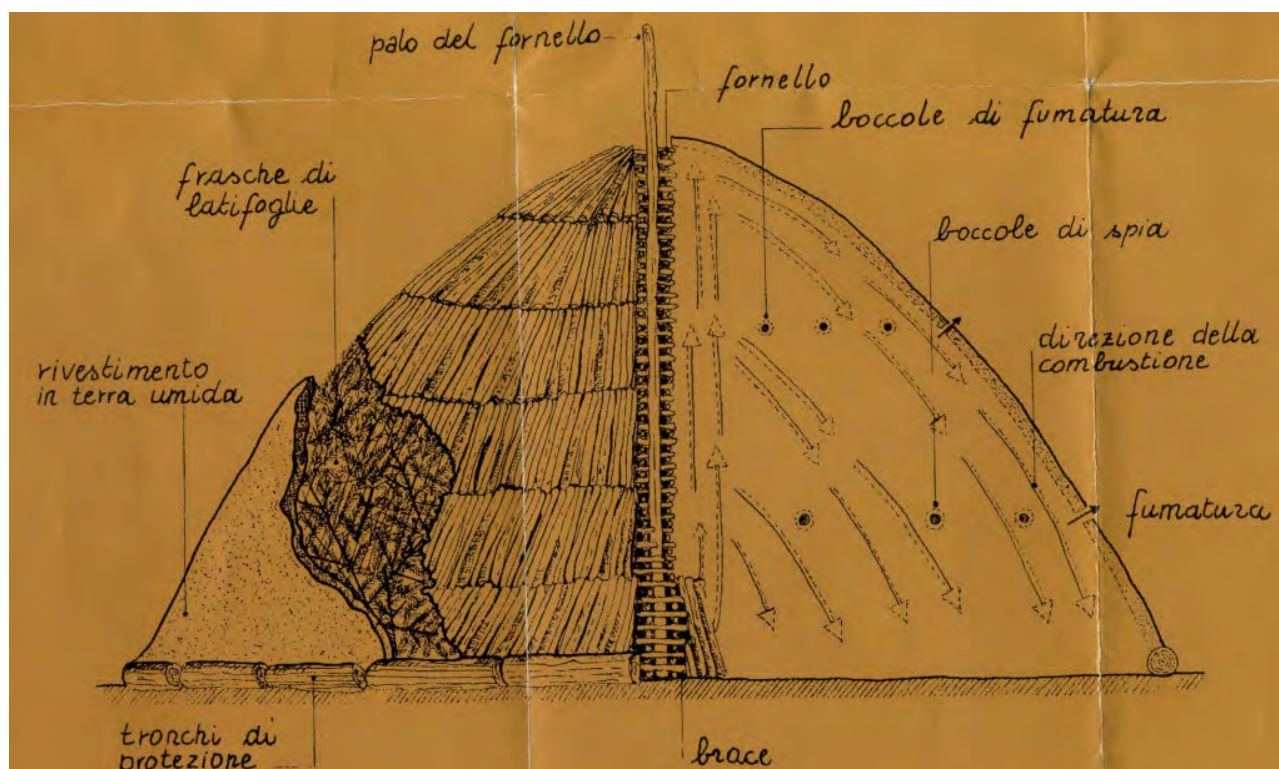 palo del fornello
fornello
boccole di fumatura
frasche di
latifoglie
boccole di spia
direzione della
combustione
rivestimento
in terra umida
fumatura
tronchi di
protezione
brace